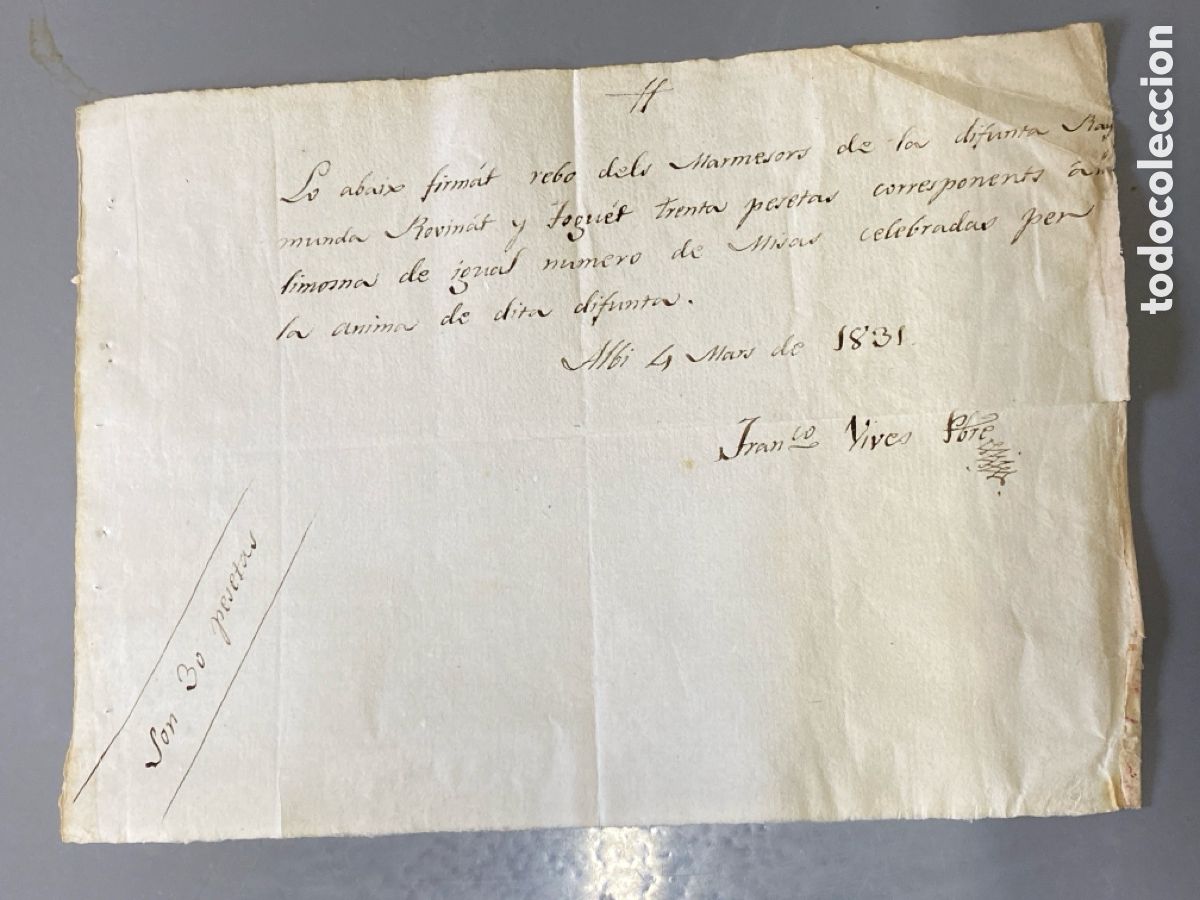 Lo abaix firmát rebo dels Marmesors de la difunta Ray
munda Rovinát y Foguét trenta pesetas corresponents á
limosna de igual numero de Misas celebradas per
la anima de dita difunta.
Albi 4 Mars de 1831.
Fran.co Vives Pbre
Son 30 pesetas
todocoleccion